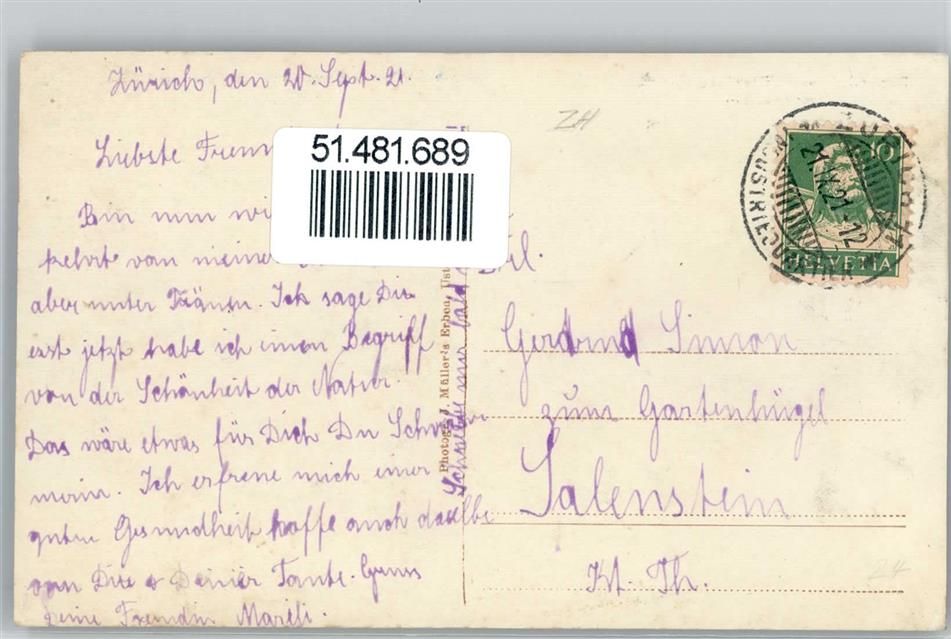 Zürich, den 20. Sept. 21.
Liebste
51.481.689
Bin nun
kehrt von meiner
aber unter Tränen. Ich sage Dir
erst jetzt habe ich einen Begriff
von der Schönheit der Natur.
Das wäre etwas für Dich Du Schwär
merin. Ich erfreue mich einer
guten Gesundheit hoffe auch dasselbe
von Dir & Deiner Tante. Gruss
Deine Freundin Marili.
Schreibe mir bald
Photogr. J. Müller's Erben,
Frl.
Gertrud Simon
zum Gartenhügel
Salenstein
Kt. Th.
ZH
10
HELVETIA
21.IX.21.-12
INDUSTRIEQUARTIER